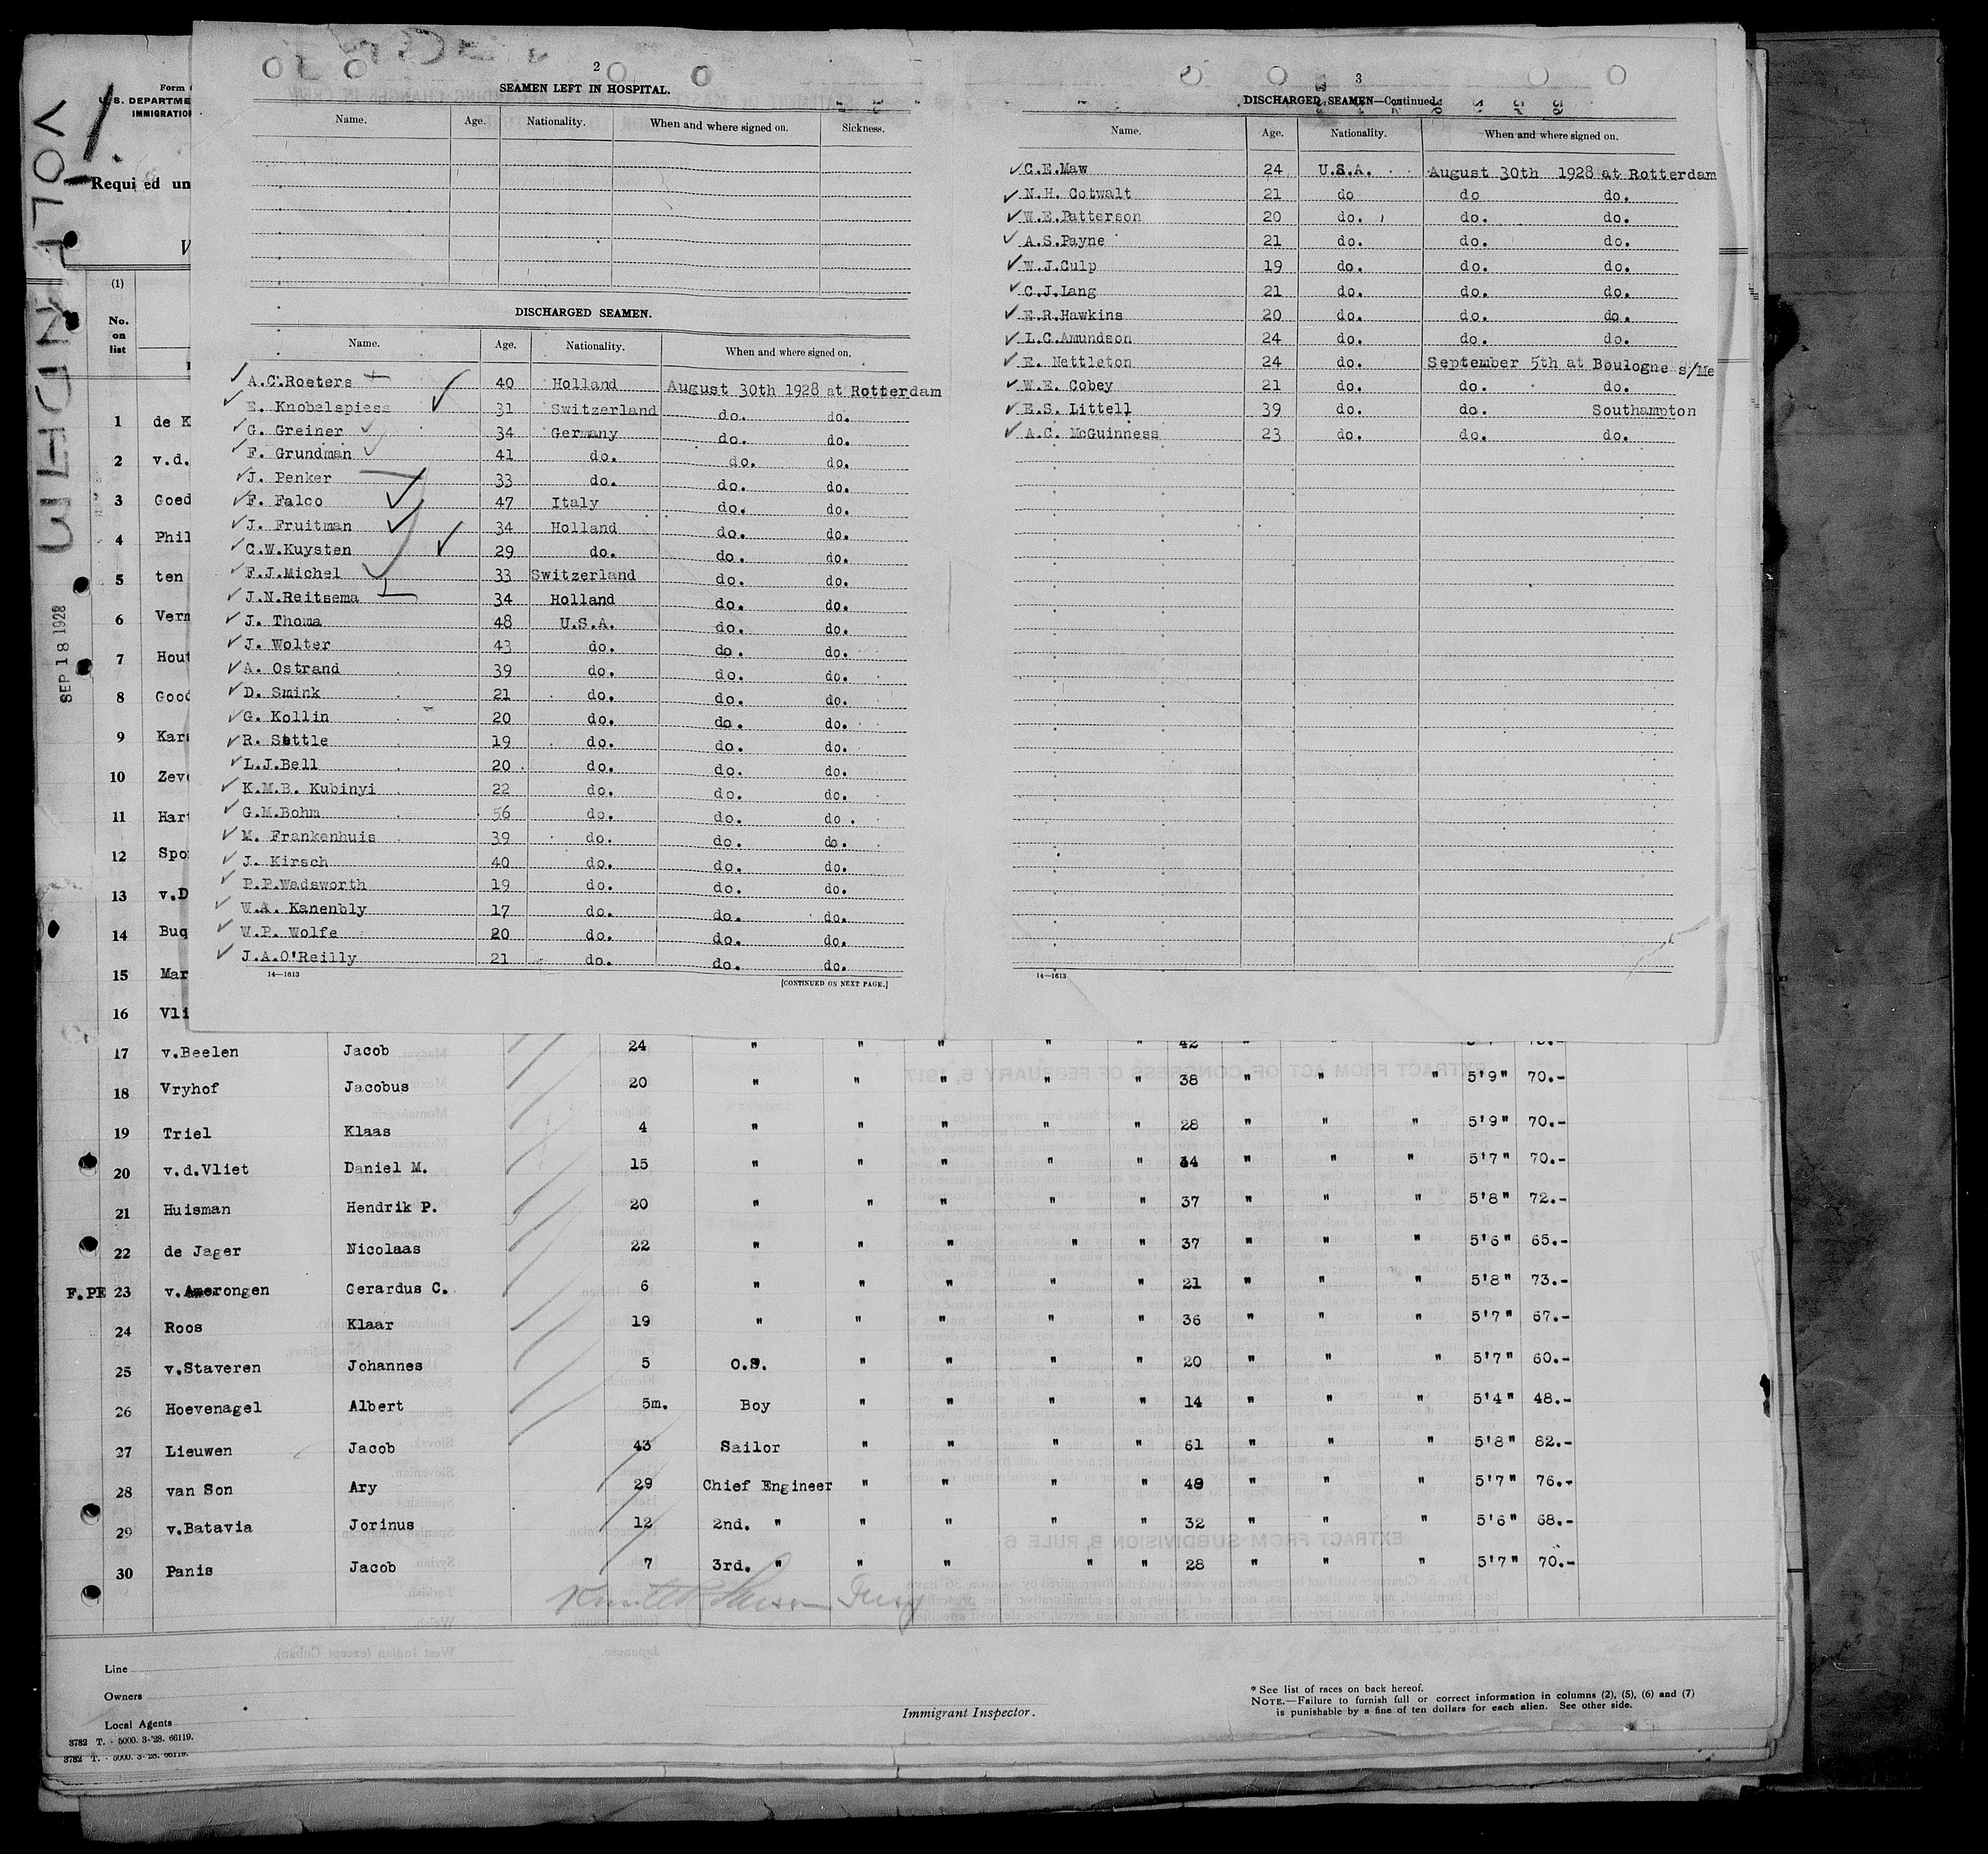 Form
U.S. DEPARTME
IMMIGRATION
Requi ed un
V
VOLENDAM
SEP 18 1928
(1)
No. on list
2
SEAMEN LEFT IN HOSPITAL.
Name. Age. Nationality. When and where signed on. Sickness.
DISCHARGED SEAMEN.
Name. Age. Nationality. When and where signed on.
A.C.Roeters 40 Holland August 30th 1928 at Rotterdam
E. Knobelspiess 31 Switzerland do. do.
G. Greiner 34 Germany do. do.
F. Grundman 41 do. do. do.
J. Penker 33 do. do. do.
F. Falco 47 Italy do. do.
J. Fruitman 34 Holland do. do.
C.W.Kuysten 29 do. do. do.
F.J.Michel 33 Switzerland do. do.
J.N.Reitsema 34 Holland do. do.
J. Thoma 48 U.S.A. do. do.
J. Wolter 43 do. do. do.
A. Ostrand 39 do. do. do.
D. Smink 21 do. do. do.
G. Kollin 20 do. do. do.
R. Settle 19 do. do. do.
L.J.Bell 20 do. do. do.
K.M.B. Kubinyi 22 do. do. do.
G.M.Bohm 56 do. do. do.
M. Frankenhuis 39 do. do. do.
J. Kirsch 40 do. do. do.
P.P.Wadsworth 19 do. do. do.
W.A. Kanenbly 17 do. do. do.
W.P. Wolfe 20 do. do. do.
J.A.O'Reilly 21 do. do. do.
14—1613
[CONTINUED ON NEXT PAGE.]
3
DISCHARGED SEAMEN—Continued.
Name. Age. Nationality. When and where signed on.
C.E.Maw 24 U.S.A. August 30th 1928 at Rotterdam
N.H. Cotwalt 21 do do do.
W.E.Patterson 20 do. do. do.
A.S.Payne 21 do. do. do.
W.J.Culp 19 do. do. do.
C.J.Lang 21 do. do. do.
E.R.Hawkins 20 do. do. do.
L.C.Amundson 24 do. do. do.
E. Nettleton 24 do. September 5th at Boulogne s/Me
W.E. Cobey 21 do. do. do.
E.S. Littell 39 do. do. Southampton
A.C. McGuinness 23 do. do. do.
14—1613
1 de K
2 v.d.
3 Goed
4 Phil
5 ten
6 Verm
7 Hout
8 Good
9 Kars
10 Zeve
11 Hart
12 Spo
13 v.D
14 Buq
15 Mar
16 Vli
17 v.Beelen Jacob 24 " " " " " 42 " "
18 Vryhof Jacobus 20 " " " " " 38 " " " 5'9" 70.-
19 Triel Klaas 4 " " " " " 28 " " " 5'9" 70.-
20 v.d.Vliet Daniel M. 15 " " " " " 34 " " " 5'7" 70.-
21 Huisman Hendrik P. 20 " " " " " 37 " " " 5'8" 72.-
22 de Jager Nicolaas 22 " " " " " 37 " " " 5'6" 65.-
F.PE 23 v.Amerongen Gerardus C. 6 " " " " " 21 " " " 5'8" 73.-
24 Roos Klaar 19 " " " " " 36 " " " 5'7" 67.-
25 v.Staveren Johannes 5 O.S. " " " " 20 " " " 5'7" 60.-
26 Hoevenagel Albert 5m. Boy " " " " 14 " " " 5'4" 48.-
27 Lieuwen Jacob 43 Sailor " " " " 61 " " " 5'8" 82.-
28 van Son Ary 29 Chief Engineer " " " " 48 " " " 5'7" 76.-
29 v.Batavia Jorinus 12 2nd. " " " " " 32 " " " 5'6" 68.-
30 Panis Jacob 7 3rd. " " " " " 28 " " " 5'7" 70.-
Line
Owners
Local Agents
Immigrant Inspector.
* See list of races on back hereof.
NOTE.—Failure to furnish full or correct information in columns (2), (5), (6) and (7)
is punishable by a fine of ten dollars for each alien. See other side.
3782 T. - 5000. 3-'28. 66119.
3782 T. - 5000. 3-'28. 66119.